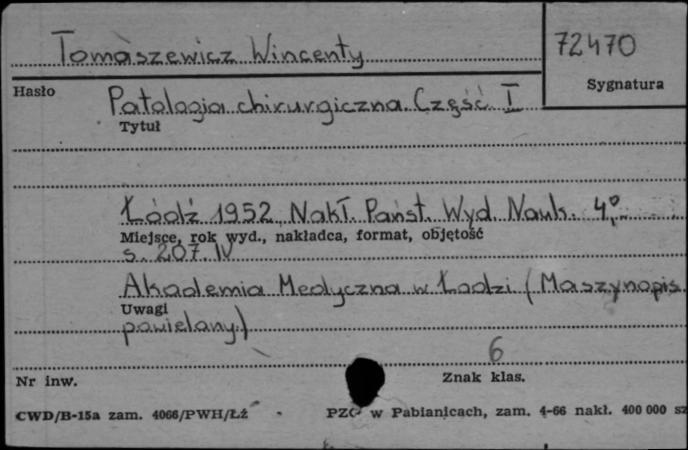 Tomaszewicz Wincenty
72470
Hasło
Sygnatura
Patologia chirurgiczna. Część I
Tytuł
Łódź 1952 Nakł. Państ. Wyd. Nauk. 4°
Miejsce, rok wyd., nakładca, format, objętość
s. 207. IV
Akademia Medyczna w Łodzi (Maszynopis
Uwagi
powielany.)
6
Nr inw.
Znak klas.
CWD/B-15a zam. 4066/PWH/Łż
PZG w Pabianicach, zam. 4-66 nakł. 400 000 sz